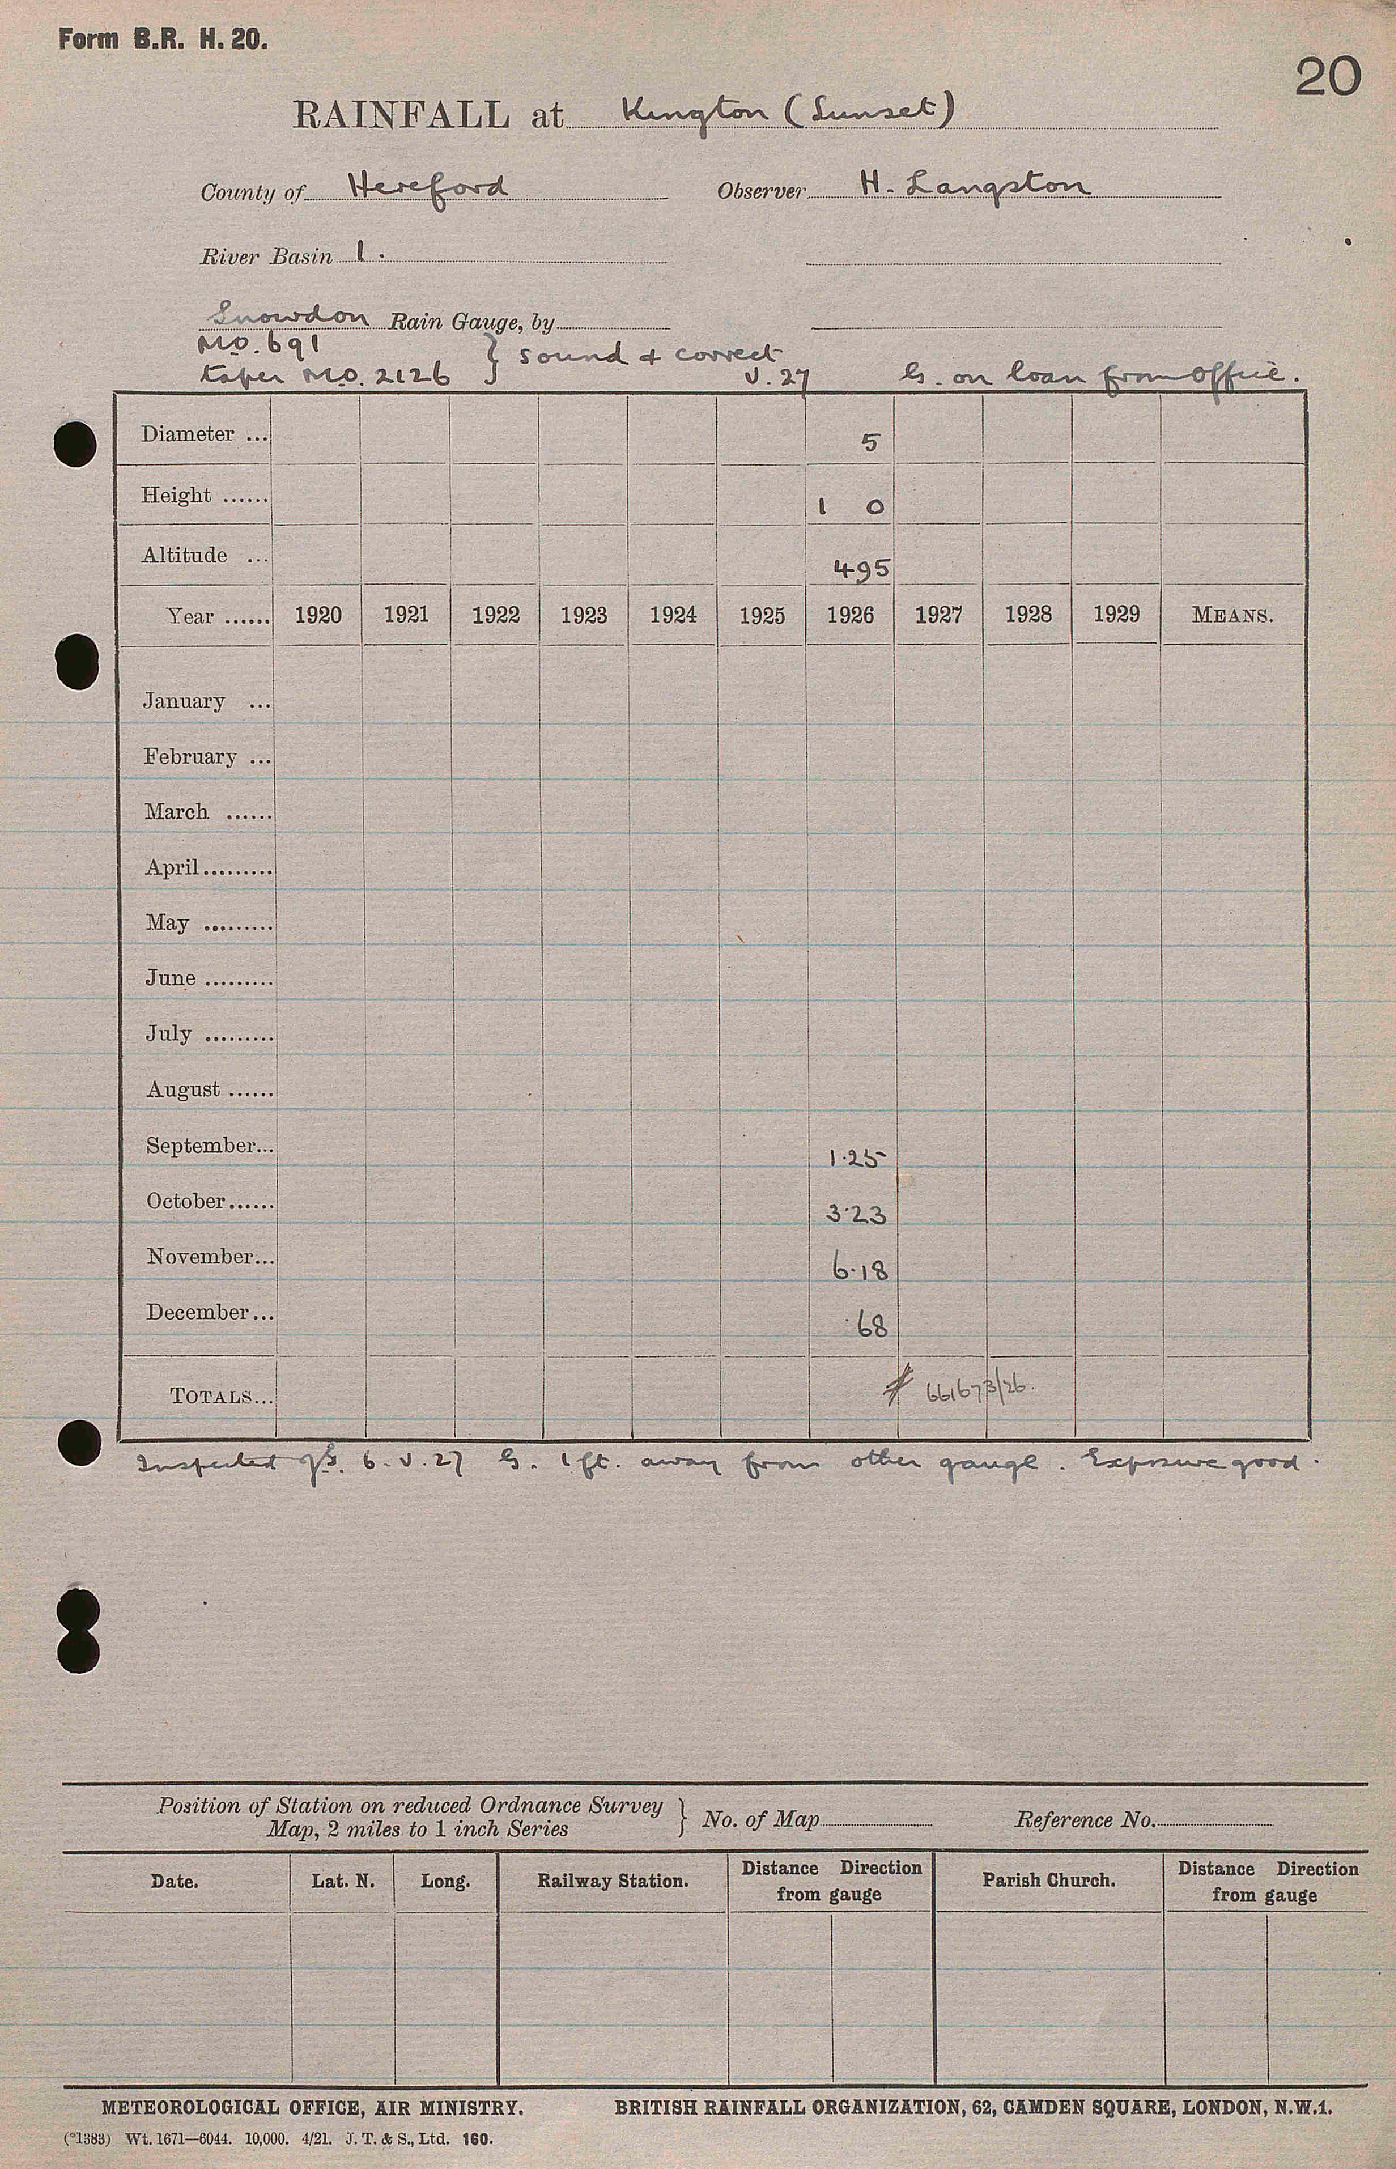 Form B.R. H. 20.
20
RAINFALL at Kington (Sunset)
County of Hereford Observer H. Langston
River Basin 1.
Snowdon Rain Gauge, by
M.O. 691
taper M.O. 2126 } sound & correct V.27 G. on loan from Office.
Diameter ... 5
Height ...... 1 0
Altitude ... 495
Year ...... 1920 1921 1922 1923 1924 1925 1926 1927 1928 1929 MEANS.
January ...
February ...
March ......
April.........
May .........
June .........
July .........
August ......
September... 1.25
October...... 3.23
November... 6.18
December... .68
TOTALS... # 661673/26.
Inspected 6.V.27 G. 1 ft. away from other gauge. Exposure good.
Position of Station on reduced Ordnance Survey Map, 2 miles to 1 inch Series } No. of Map Reference No.
Date. Lat. N. Long. Railway Station. Distance Direction from gauge Parish Church. Distance Direction from gauge
METEOROLOGICAL OFFICE, AIR MINISTRY. BRITISH RAINFALL ORGANIZATION, 62, CAMDEN SQUARE, LONDON, N.W.1.
(*1383) Wt. 1671—6044. 10,000. 4/21. J. T. & S., Ltd. 160.